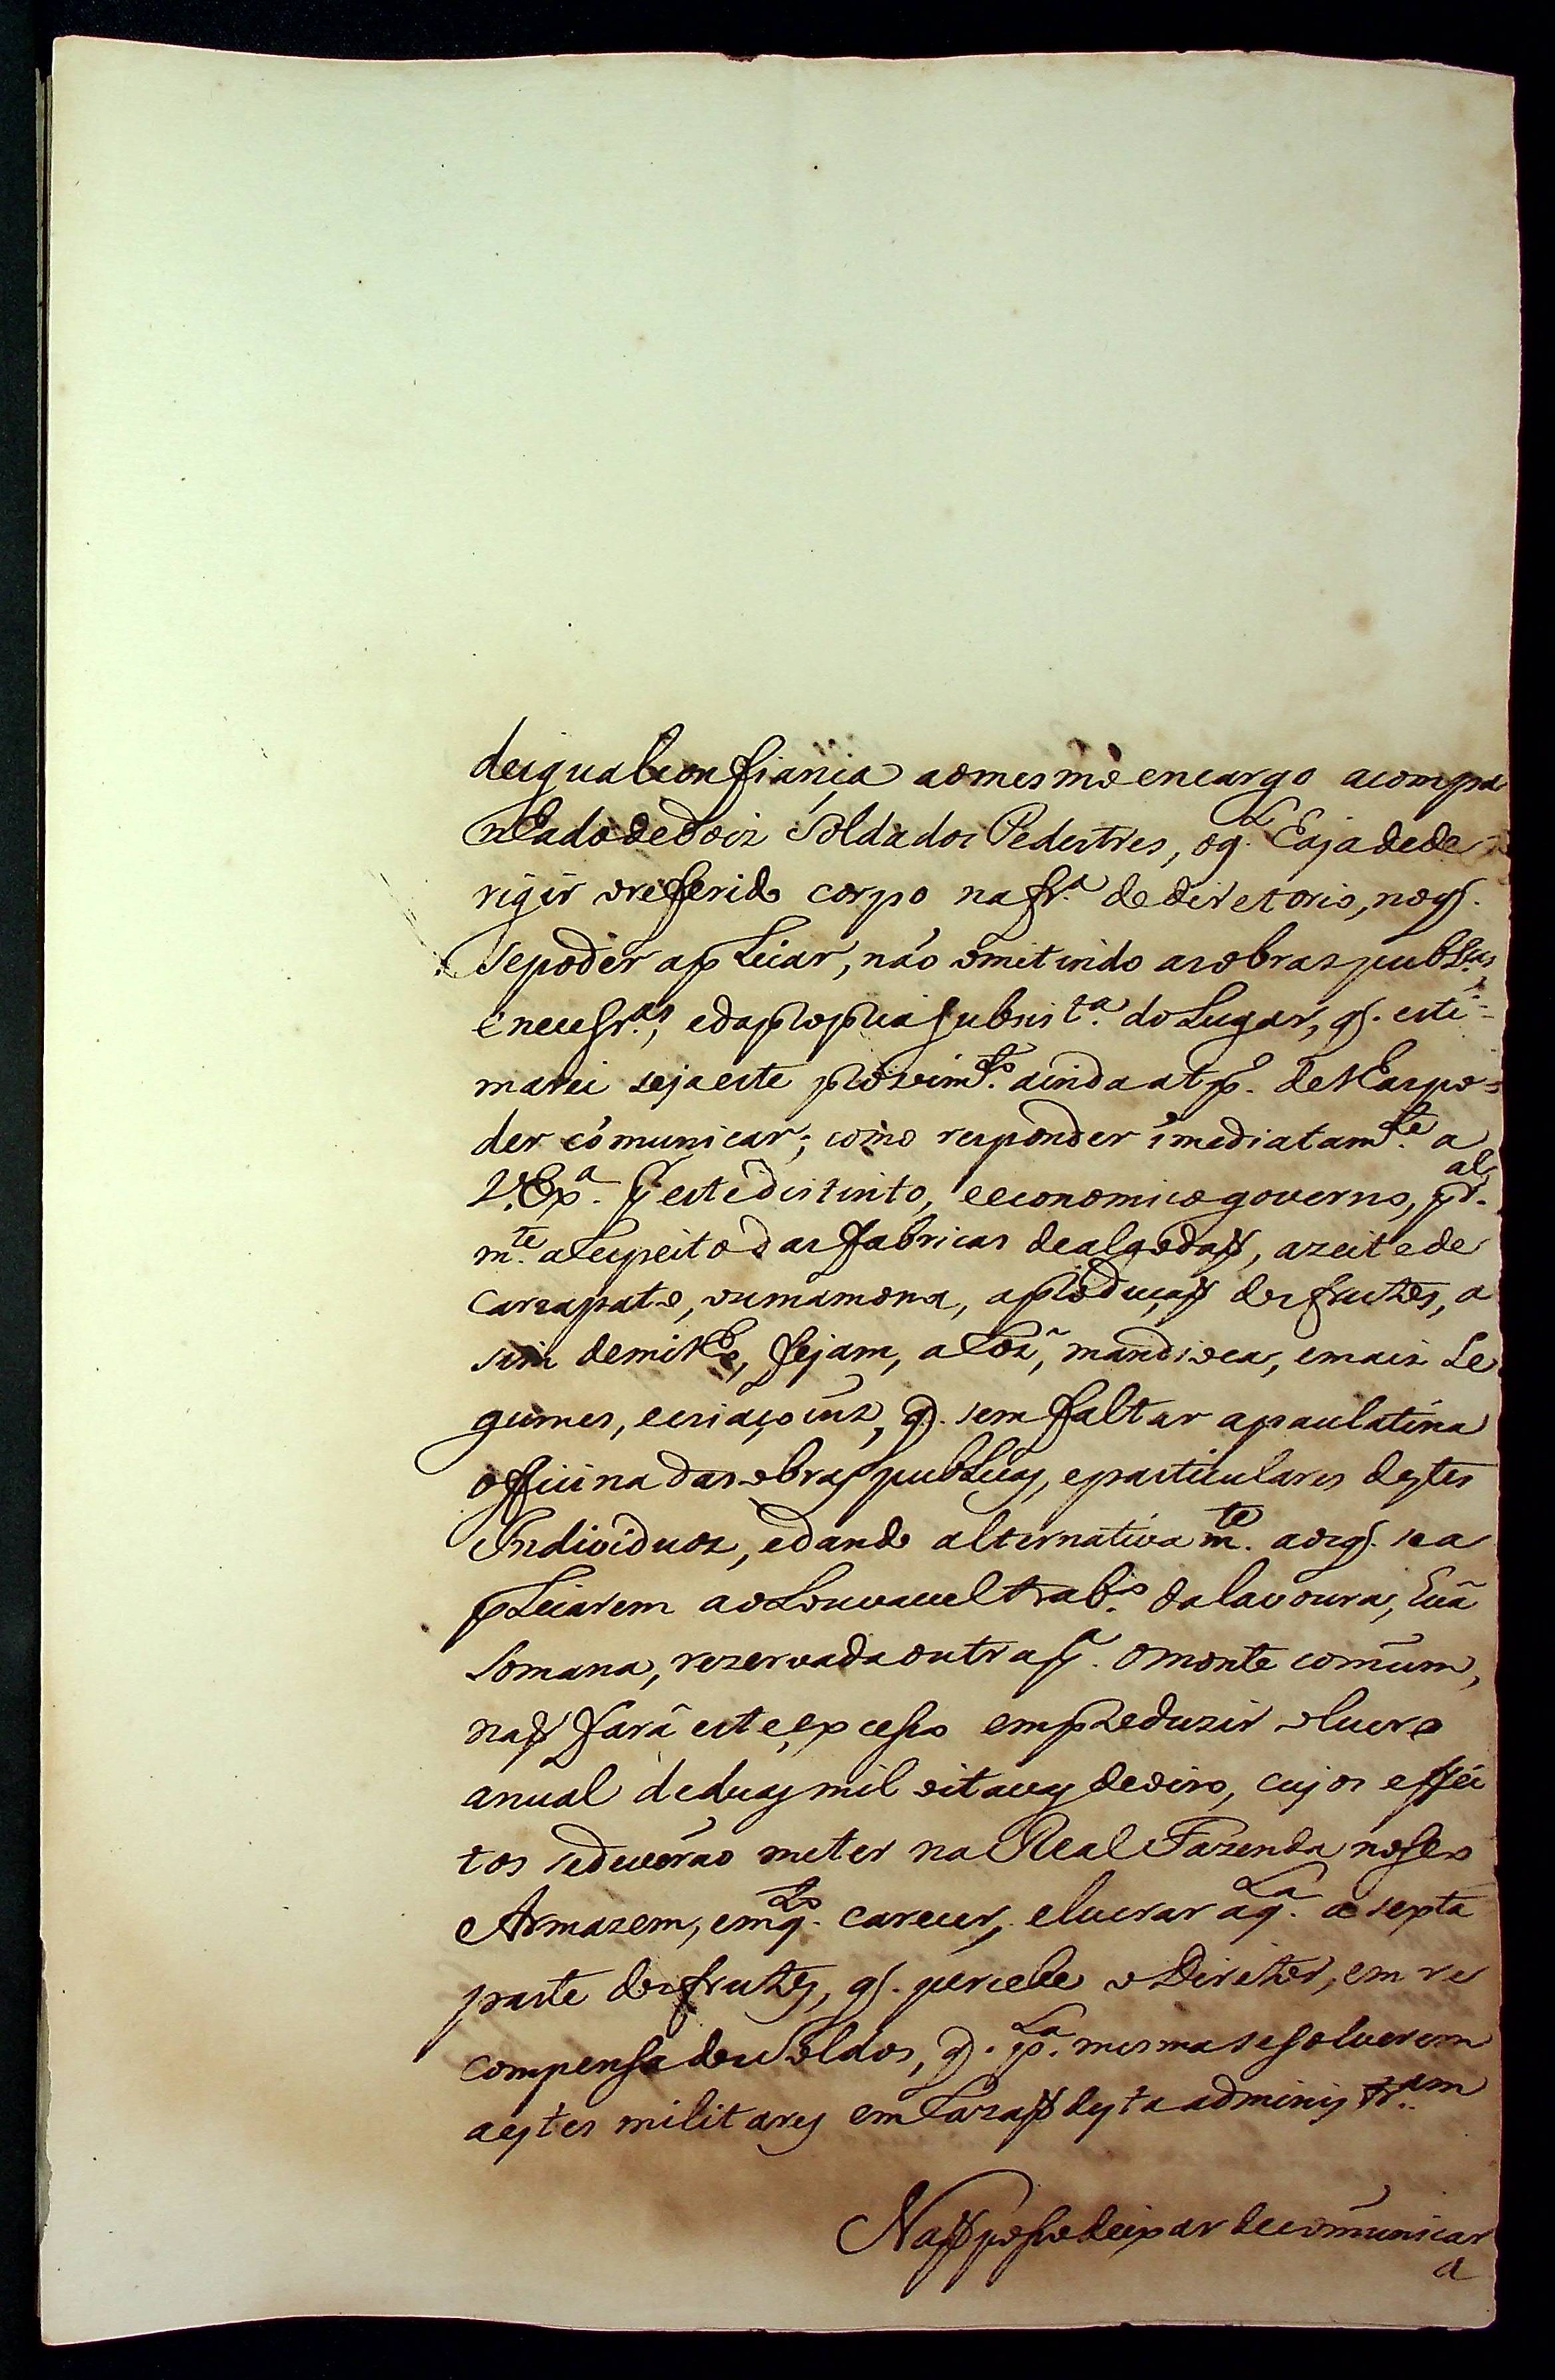 deigualconfiança aomesmo encargo acompa
nhado de dois Soldados Pedestres, oq.l haja dede
rigir oreferido corpo nafr.a dediretorio, noq.
sepoder aplicar, não omitindo asobras publ.cas
eneces.ras, edaproprîa subsist.a do Lugar, q. esti-
marei seja este provim.to ainda at p. lehaspo=
der cómunicar; como responder imediatam.te a
V.Ex.a p.r estedistinto, eeconomico governo, pr.al
m.te aRespeito das fabricas dealgodaõ, azeitede
carrapato, oumamona, aproduçaõ dosfrutos, a
sim demilho, fejam, aRoz, mandioca, emais Le
gumes, ecriaçoins, q. sem faltar apaulatina
officina das obras publicas, eparticulares destes
Individuos, edando alternativam.te aosq. sea
plicarem aoLouvavel trab.o dalavoura, huã
somana, rezervadaoutra p.a omonte comũm,
naõ fará este excesso emproduzir olucro
anual deduas mil oitavas deoiro, cujos effei
tos sedeverão meter naReal Fazenda noseo
Armazem, emq.to carecer, elucrar aq.la a sexta
parte dosfrutos, q. percebe oDiretor, em re
compensa deseoSoldos, q. p.la mesma sesolverem
aestes militares emRazaõ desta administr.am
Naõ posso deixar decomunicar
a